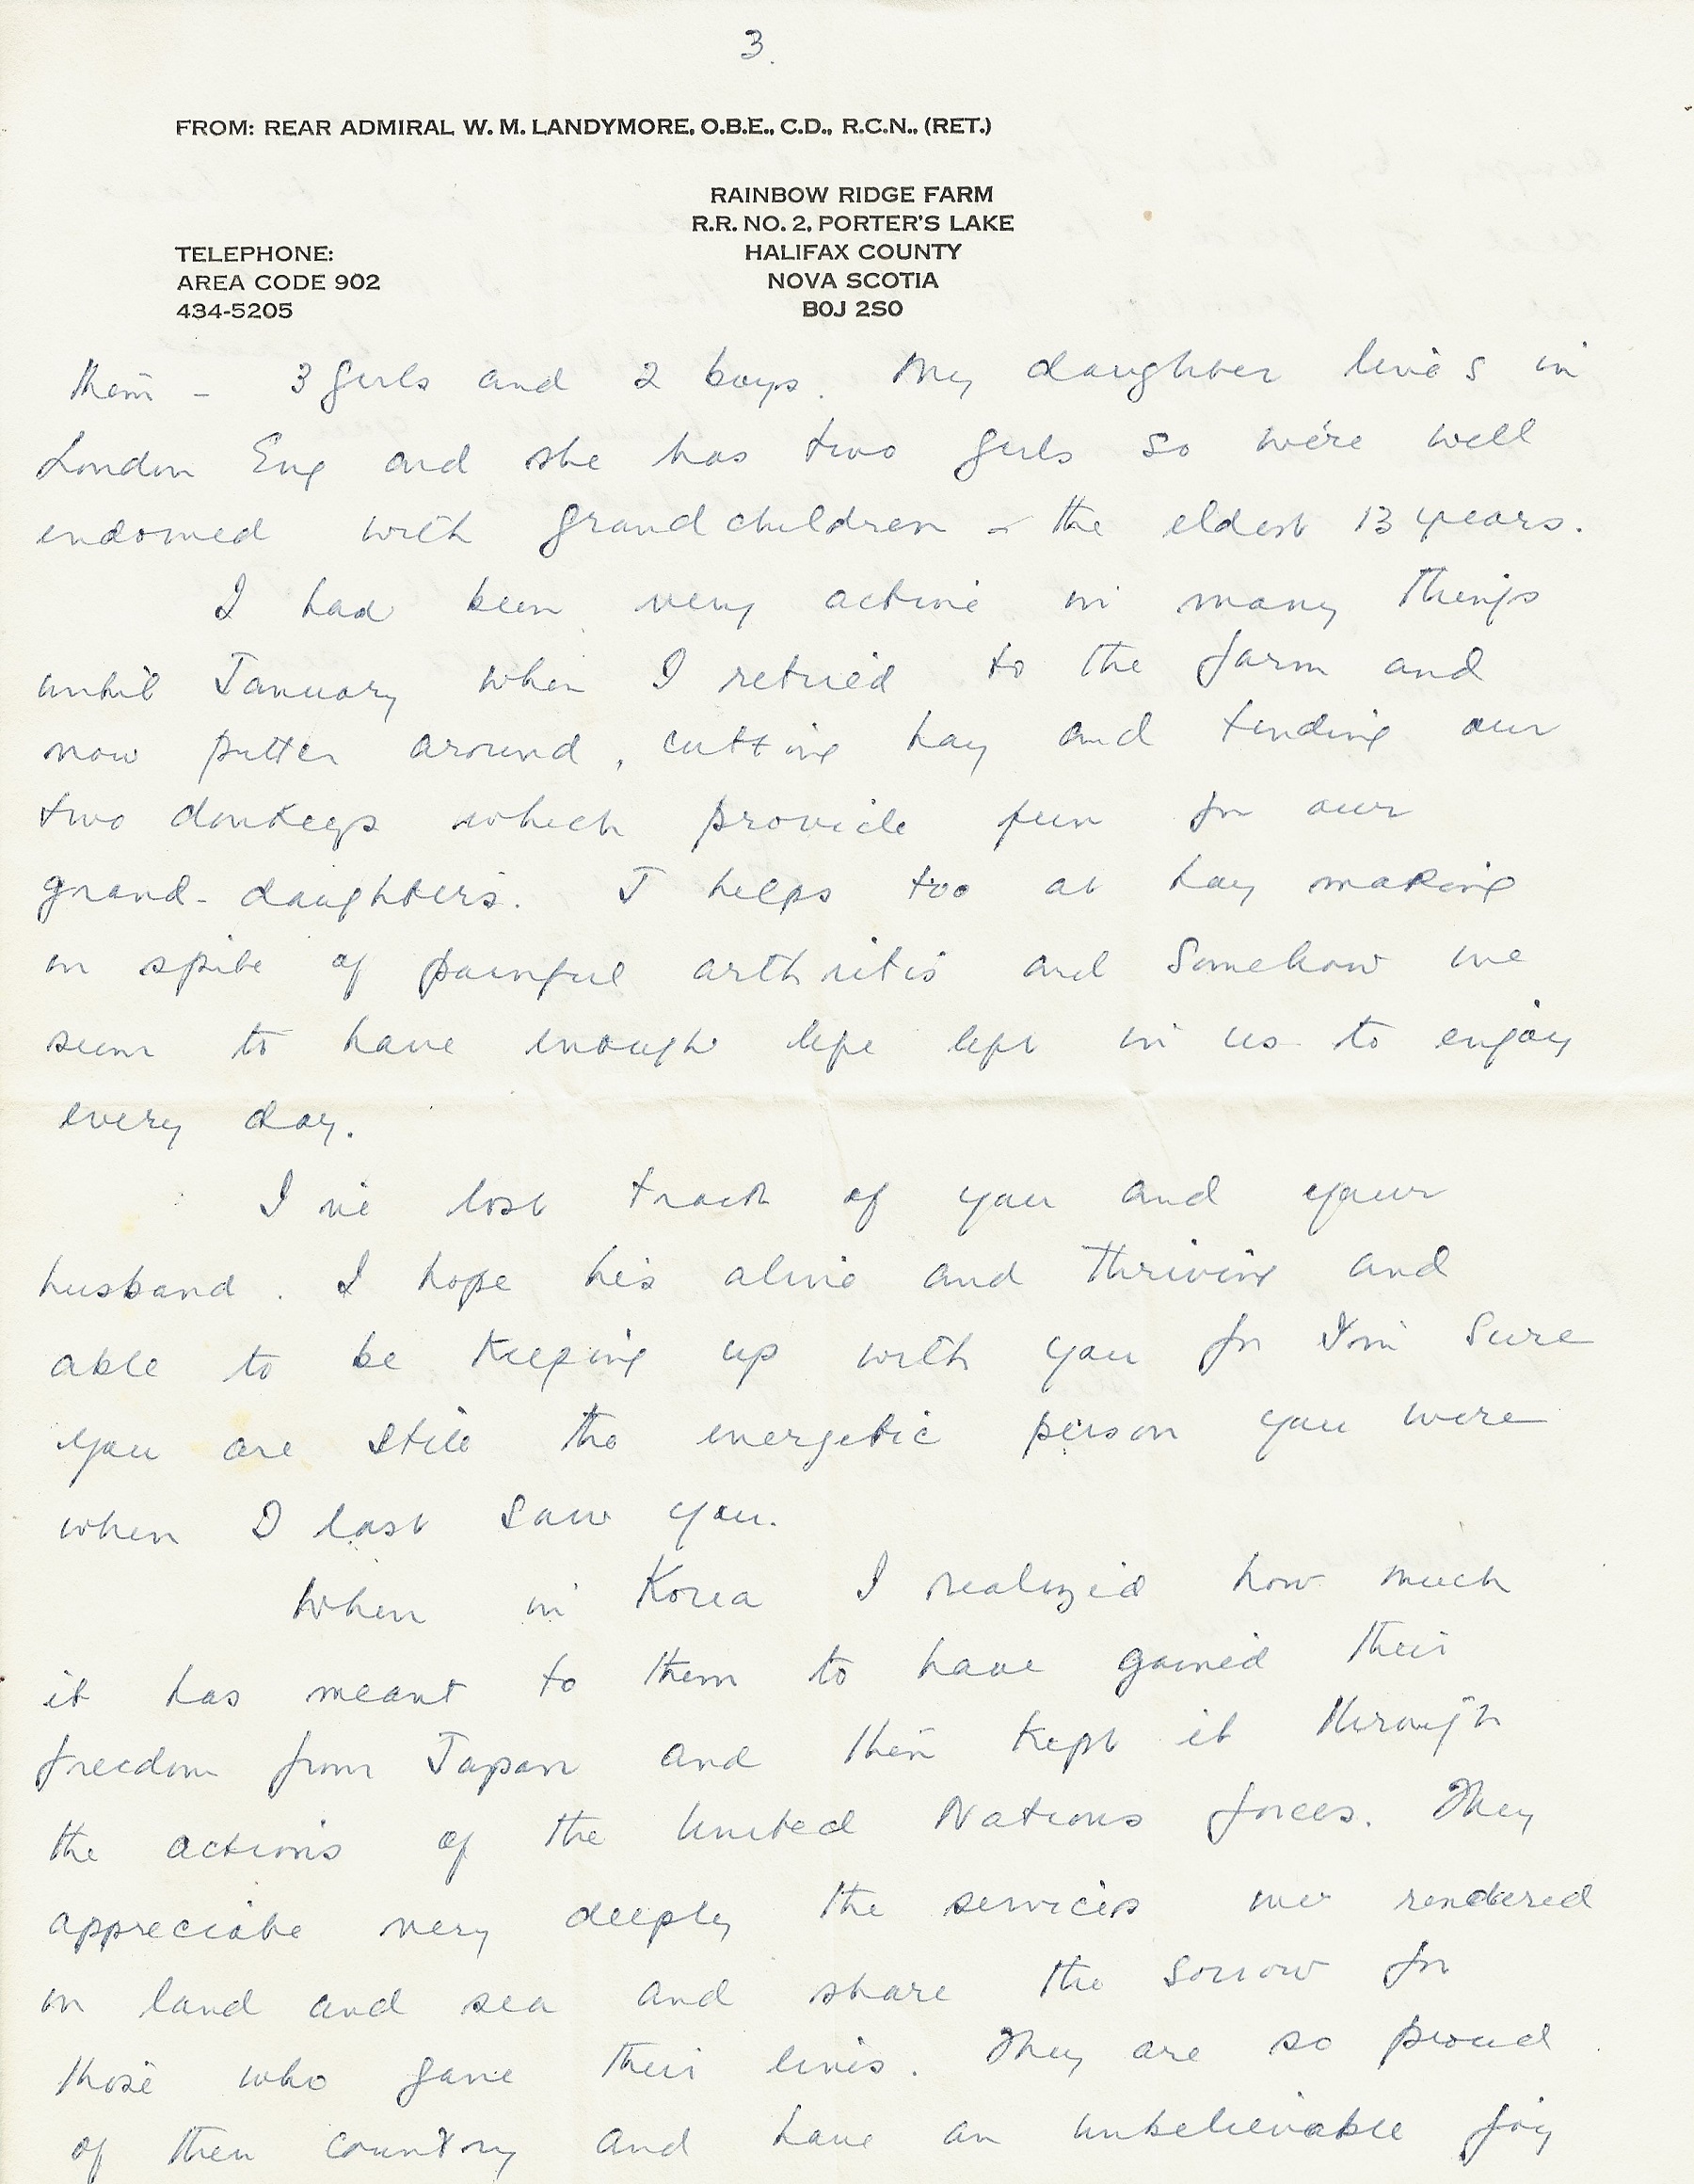 3.
FROM: REAR ADMIRAL W. M. LANDYMORE, O.B.E., C.D., R.C.N., (RET.)
RAINBOW RIDGE FARM
R.R. NO. 2, PORTER'S LAKE
HALIFAX COUNTY
NOVA SCOTIA
B0J 2S0
TELEPHONE:
AREA CODE 902
434-5205
them - 3 girls and 2 boys. My daughter lives in
London Eng and she has two girls so we're well
endowed with grandchildren - the eldest 13 years.
I had been very active in many things
until January when I retired to the farm and
now putter around, cutting hay and tending our
two donkeys which provide fun for our
grand-daughters. J helps too at hay making
in spite of painful arthritis and somehow we
seem to have enough life left in us to enjoy
every day.
I've lost track of you and your
husband. I hope he's alive and thriving and
able to be keeping up with you for I'm sure
you are still the energetic person you were
when I last saw you.
When in Korea I realized how much
it has meant to them to have gained their
freedom from Japan and then kept it through
the actions of the United Nations forces. They
appreciate very deeply the services we rendered
on land and sea and share the sorrow for
those who gave their lives. They are so proud
of their country and have an unbelievable joy